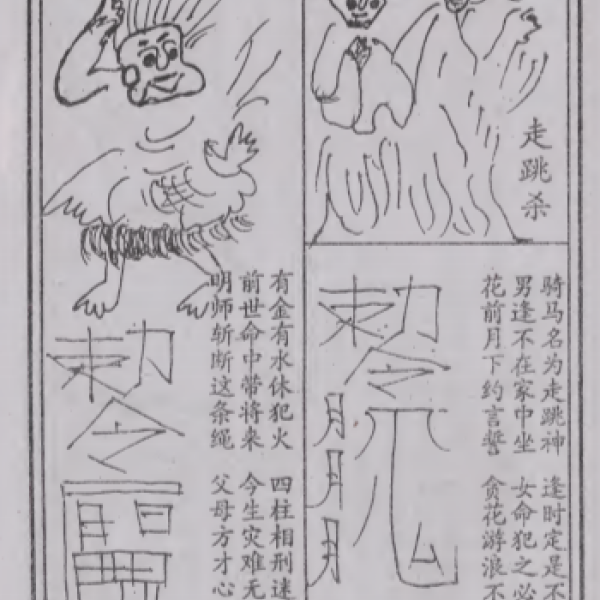 走跳杀
骑马名为走跳神
男逢不在家中坐
花前月下约言誓
逢时定是不
女命犯之必
贪花游浪不
敕令
月
月
月
有金有水休犯火
前世命中带将来
明师斩断这条绳
四柱相刑迷
今生灾难无
父母方才心
敕令